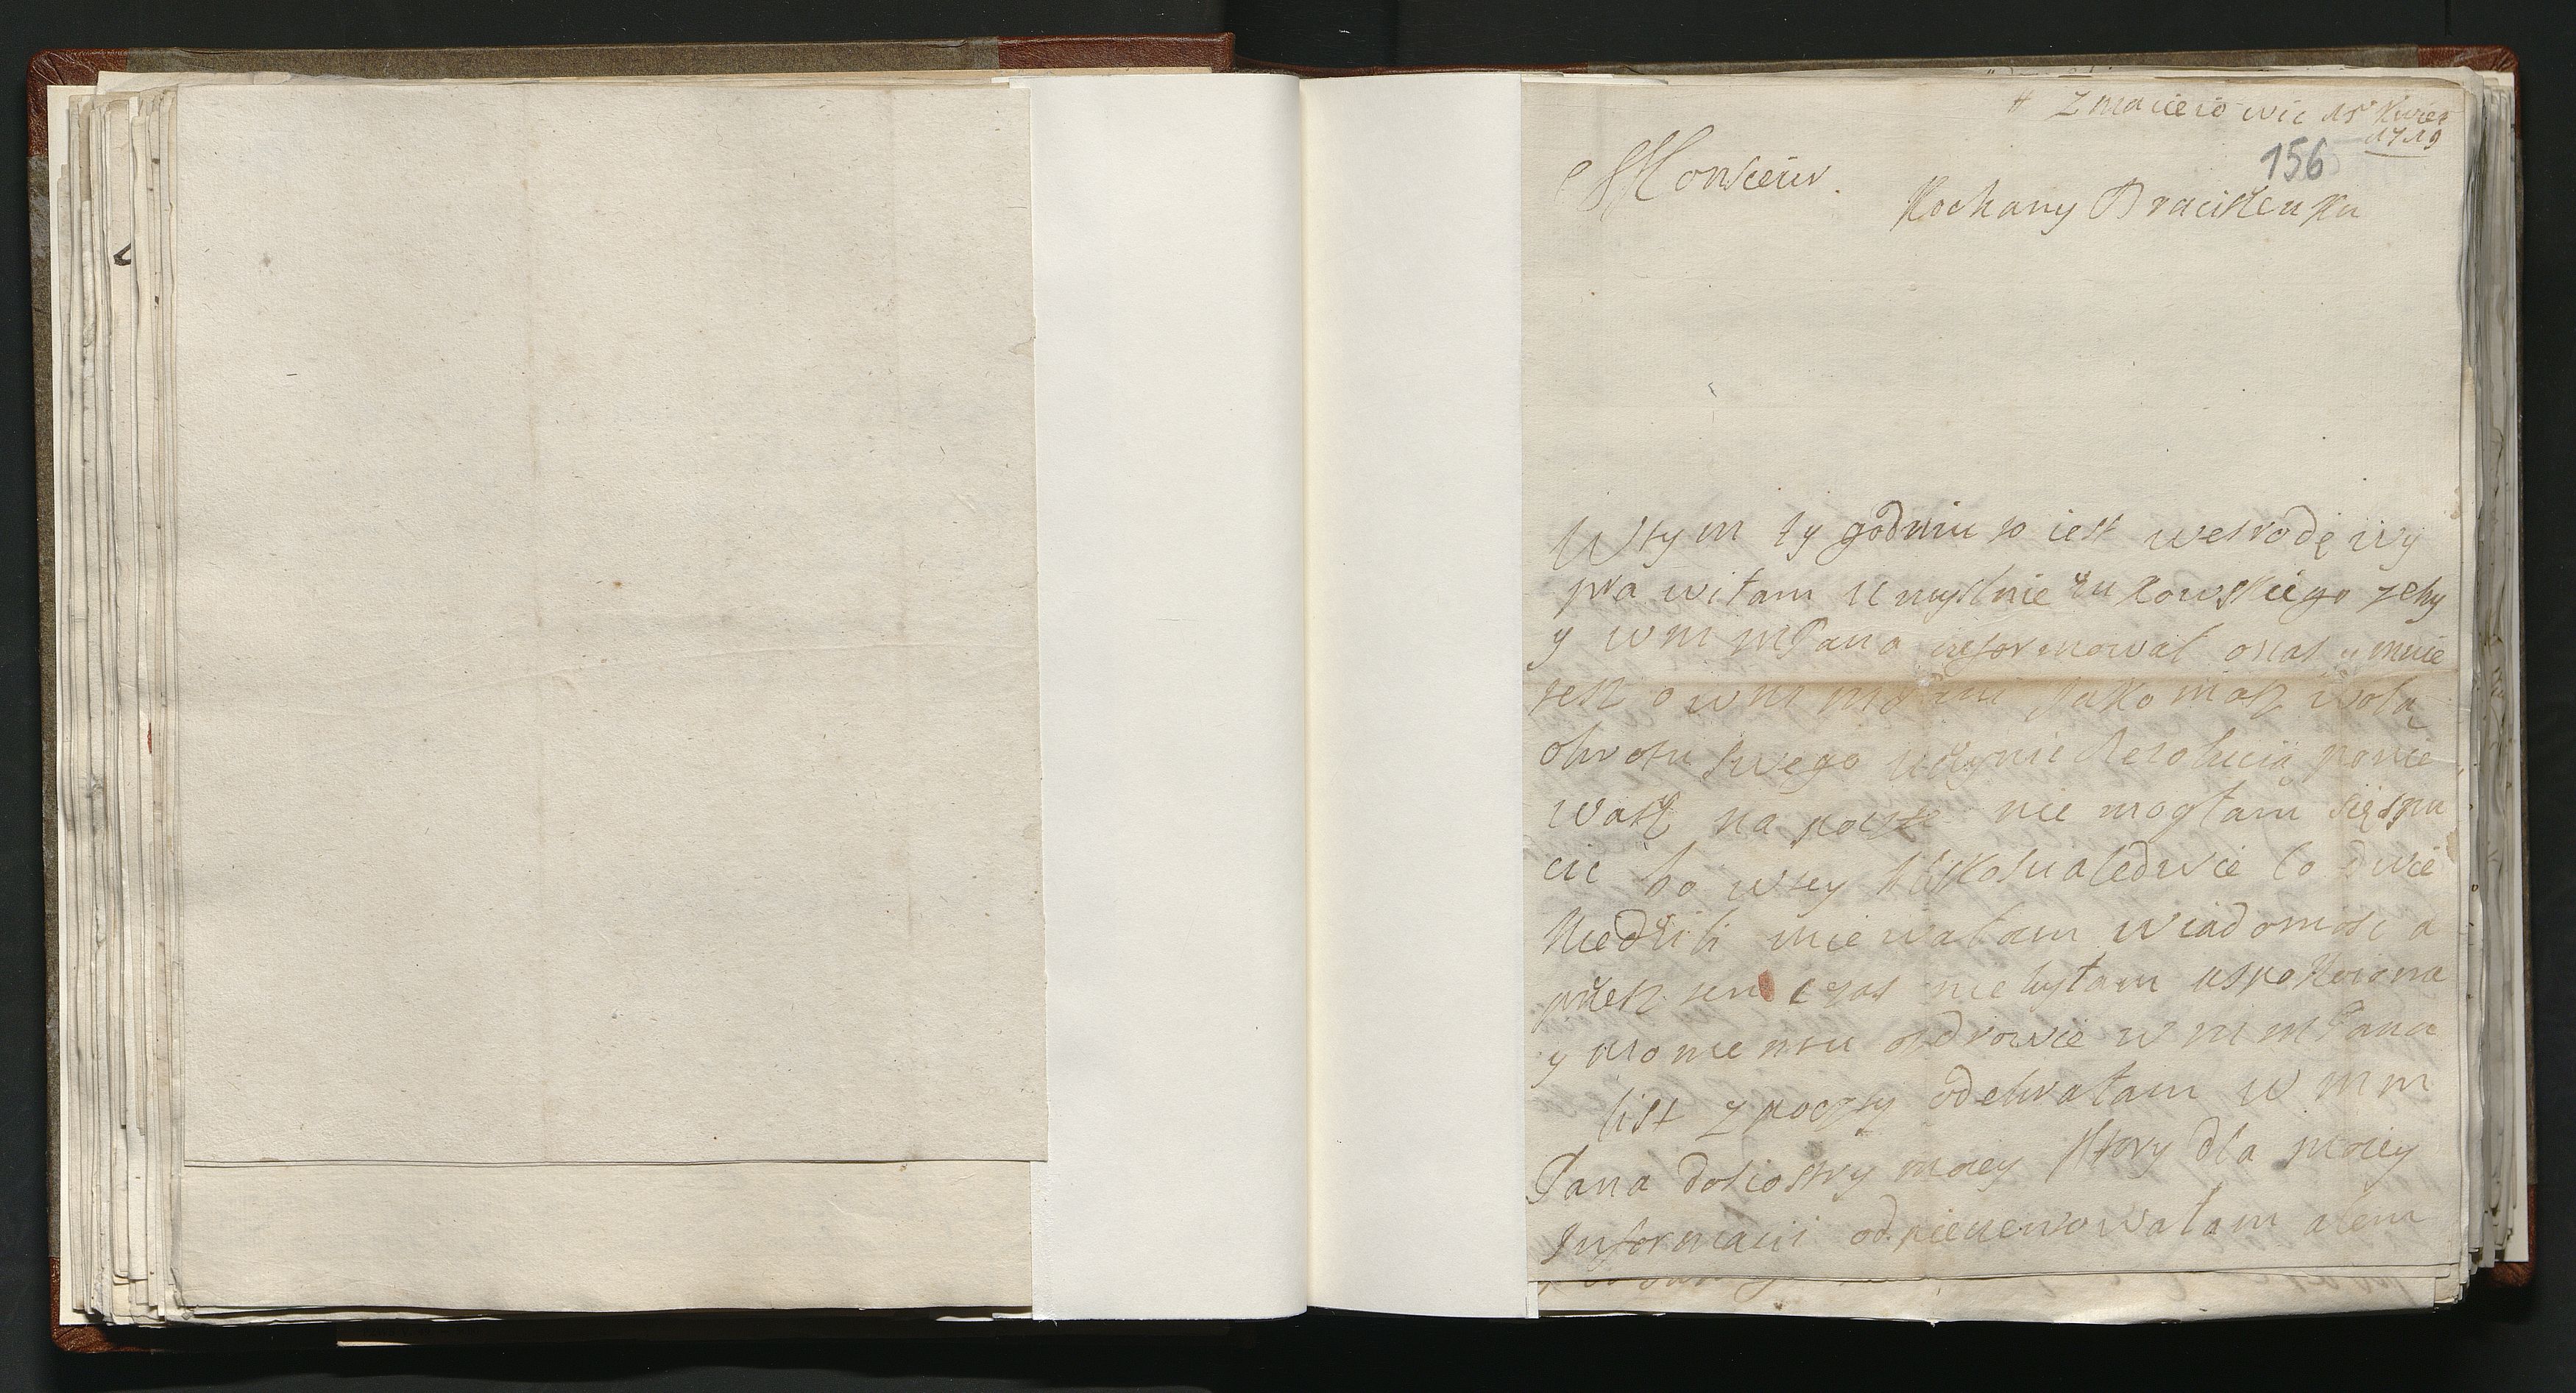 # z macieiowic 15 Kwiet
1719
156
Monsieur.
Kochany Braciszenku
W tym tygodniu to iest wesrodę wy
prawiłam umyslnie żukowskiego zeby
y wm mPana informował onas u mnie
tesz o wm mPanu Jako masz wolą
obrotu swego uczynic Rezolucią ponie
wasz na poczte nie mogłam się spu
cic bo wtey bliskosci aledwie co dwie
Niedzieli miewałam wiadomosc a
przesz ten czas niebyłam uspokoiona
y momentu ozdrowie wm mPana
list zpoczty odebrałam w m m
Pana dosiostry moiey ktory dla moiey
Informacii odpieczentowałam alem